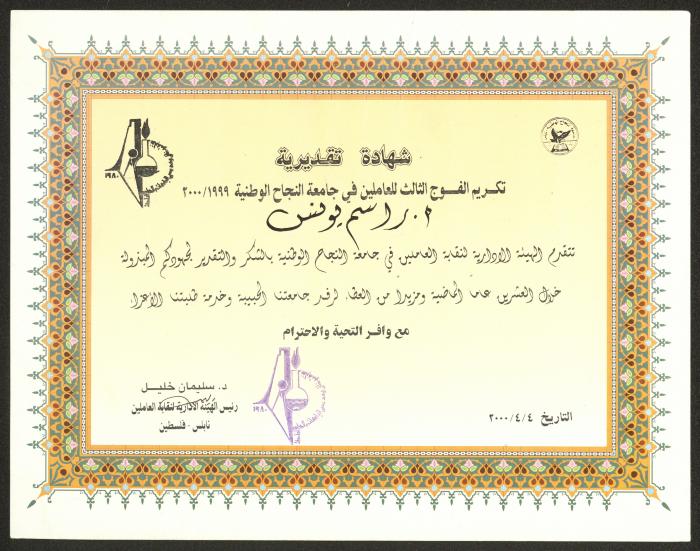 شهادة تقديرية
تكريم الفوج الثالث للعاملين في جامعة النجاح الوطنية ٢٠٠٠/١٩٩٩
م. راسم يونس
تتقدم الهيئة الادارية لنقابة العاملين في جامعة النجاح الوطنية بالشكر والتقدير لجهودكم المبذولة
خلال العشرين عاما الماضية ومزيدا من العطاء لرفد جامعتنا الحبيبة وخدمة طلبتنا الأعزاء
مع وافر التحية والاحترام
د. سليمان خليل
رئيس الهيئة الادارية لنقابة العاملين
نابلس - فلسطين
التاريخ ٢٠٠٠/٤/٤
١٩٨٠
١٩٨٠